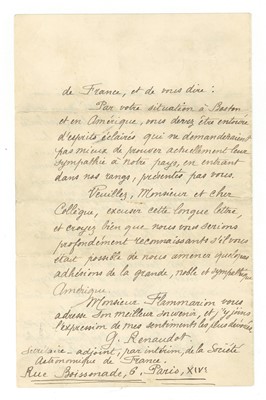 de France, et de vous dire :
"Par votre situation à Boston
et en Amérique, vous devez être entouré
d'esprits éclairés qui ne demanderaient
pas mieux de prouver actuellement leur
sympathie à notre pays, en entrant
dans nos rangs, présentés par vous.
Veuillez, Monsieur et cher
Collègue, excuser cette longue lettre,
et croyez bien que nous vous serions
profondément reconnaissants s'il vous
était possible de nous amener quelques
adhésions de la grande, noble et sympathique
Amérique.
Monsieur Flammarion vous
adresse son meilleur souvenir, et j'y joins
l'expression de mes sentiments les plus dévoués.
G. Renaudot
Secrétaire-adjoint, par intérim, de la Société
Astronomique de France.
Rue Boissonade, 6, Paris, XIVe